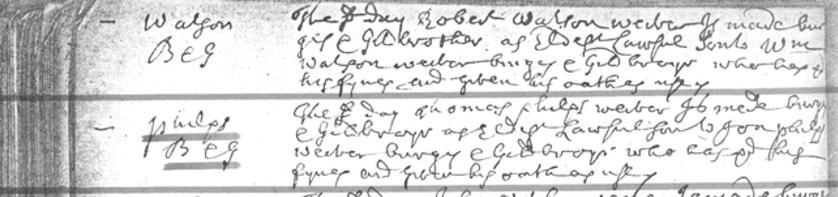 Watson
B & G
The sd day Robert Watson weiver Is made bur
ges & Gildbrother as Eldest Lawful Son to Wm
Watson weiver burges & Gildbroyr who hes pd
his fynes and given his oath as use is
philps
B & G
The sd day thomas philps weiver Is made burges
& Gildbroyr as Eldest Lawful Son to Jon philps
weiver burges & Gildbroyr who hes pd his
fynes and given his oath as use is